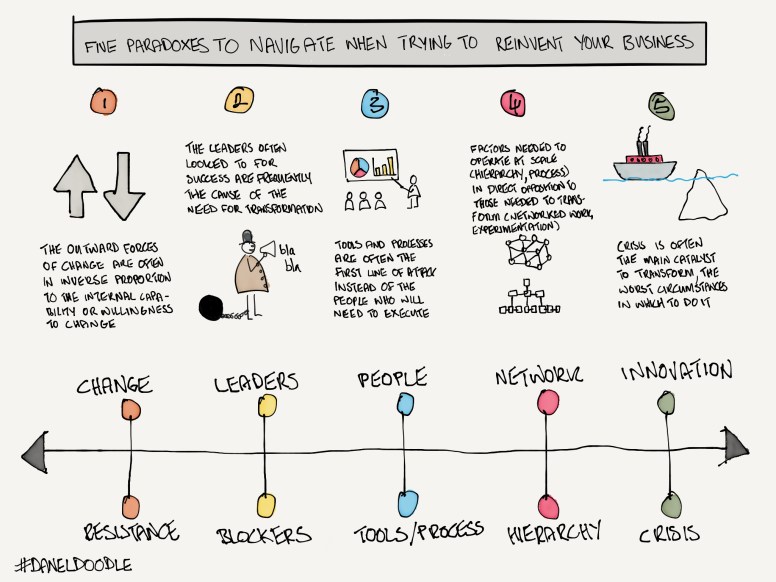 FIVE PARADOXES TO NAVIGATE WHEN TRYING TO REINVENT YOUR BUSINESS
1
2
3
4
5
THE OUTWARD FORCES
OF CHANGE ARE OFTEN
IN INVERSE PROPORTION
TO THE INTERNAL CAPA-
BILITY OR WILLINGNESS
TO CHANGE
THE LEADERS OFTEN
LOOKED TO FOR
SUCCESS ARE FREQUENTLY
THE CAUSE OF THE
NEED FOR TRANSFORMATION
bla
bla
TOOLS AND PROCESSES
ARE OFTEN THE
FIRST LINE OF ATTACK
INSTEAD OF THE
PEOPLE WHO WILL
NEED TO EXECUTE
FACTORS NEEDED TO
OPERATE AT SCALE
(HIERARCHY, PROCESS)
IN DIRECT OPPOSITION TO
THOSE NEEDED TO TRANS-
FORM (NETWORKED WORK,
EXPERIMENTATION)
CRISIS IS OFTEN
THE MAIN CATALYST
TO TRANSFORM, THE
WORST CIRCUMSTANCES
IN WHICH TO DO IT
CHANGE
LEADERS
PEOPLE
NETWORK
INNOVATION
RESISTANCE
BLOCKERS
TOOLS/PROCESS
HIERARCHY
CRISIS
#DANELDOODLE